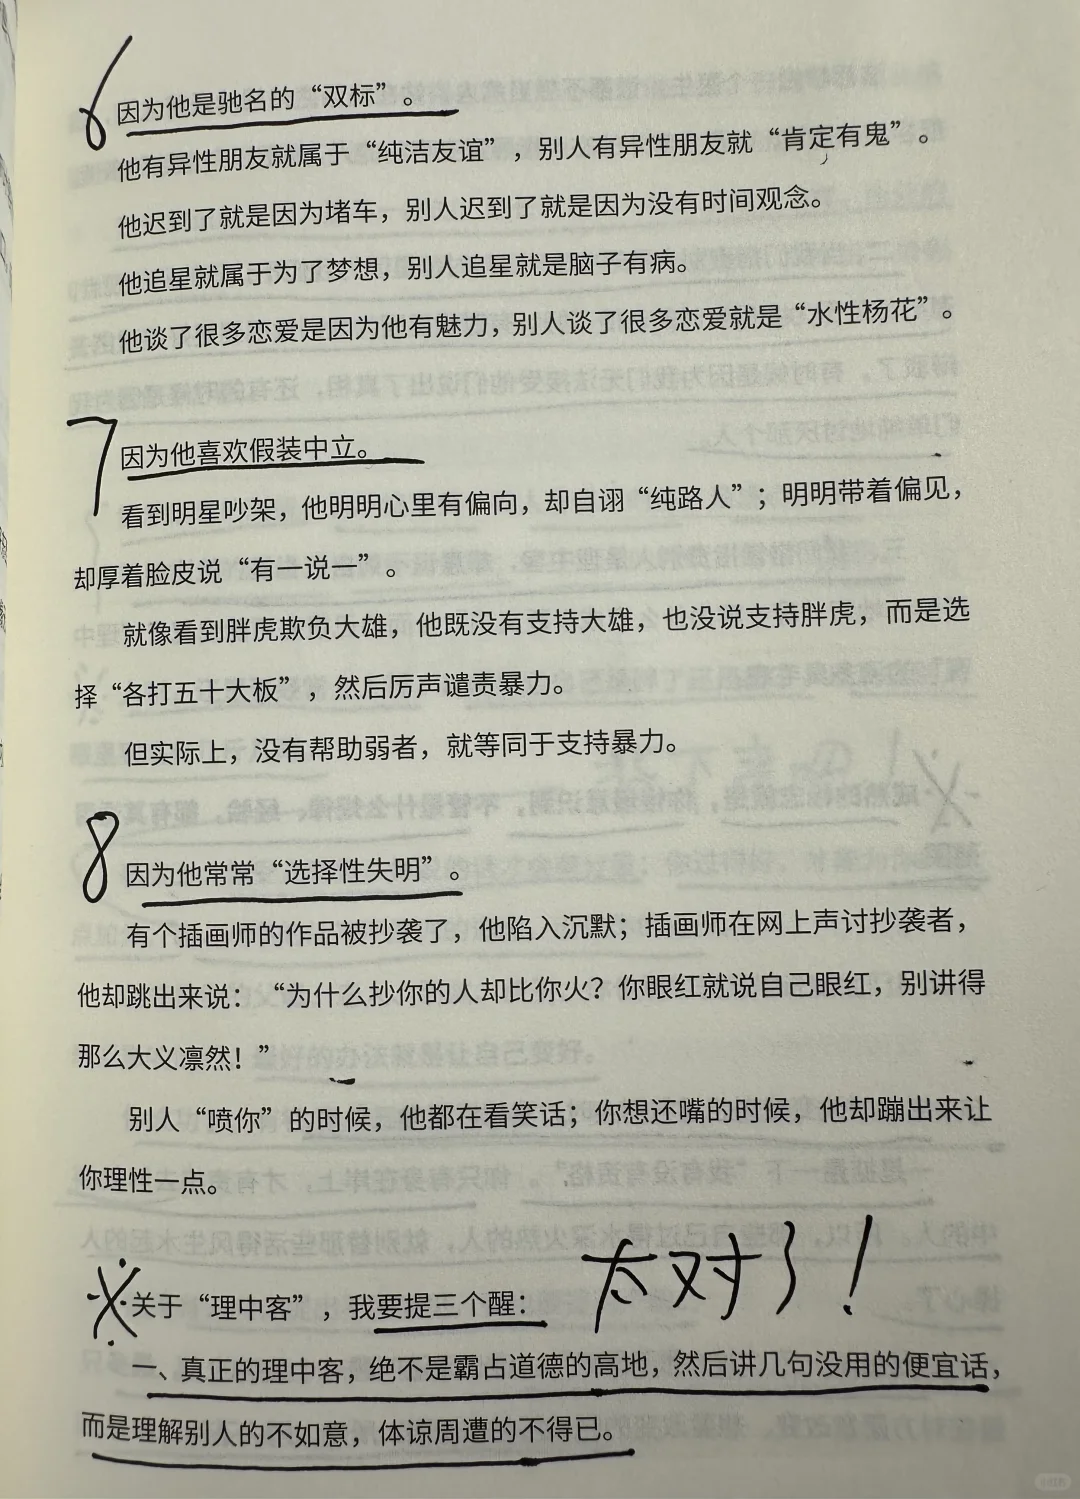 6 因为他是驰名的“双标”。
他有异性朋友就属于“纯洁友谊”，别人有异性朋友就“肯定有鬼”。
他迟到了就是因为堵车，别人迟到了就是因为没有时间观念。
他追星就属于为了梦想，别人追星就是脑子有病。
他谈了很多恋爱是因为他有魅力，别人谈了很多恋爱就是“水性杨花”。
7 因为他喜欢假装中立。
看到明星吵架，他明明心里有偏向，却自诩“纯路人”；明明带着偏见，
却厚着脸皮说“有一说一”。
就像看到胖虎欺负大雄，他既没有支持大雄，也没说支持胖虎，而是选
择“各打五十大板”，然后厉声谴责暴力。
但实际上，没有帮助弱者，就等同于支持暴力。
8 因为他常常“选择性失明”。
有个插画师的作品被抄袭了，他陷入沉默；插画师在网上声讨抄袭者，
他却跳出来说：“为什么抄你的人却比你火？你眼红就说自己眼红，别讲得
那么大义凛然！”
别人“喷你”的时候，他都在看笑话；你想还嘴的时候，他却蹦出来让
你理性一点。
太对了！
※关于“理中客”，我要提三个醒：
一、真正的理中客，绝不是霸占道德的高地，然后讲几句没用的便宜话，
而是理解别人的不如意，体谅周遭的不得已。